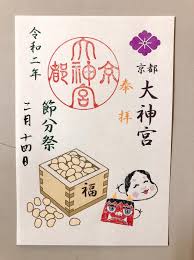 奉拝
京都
大神宮
京都
大神宮
節分祭
令和二年
二月十四日
福